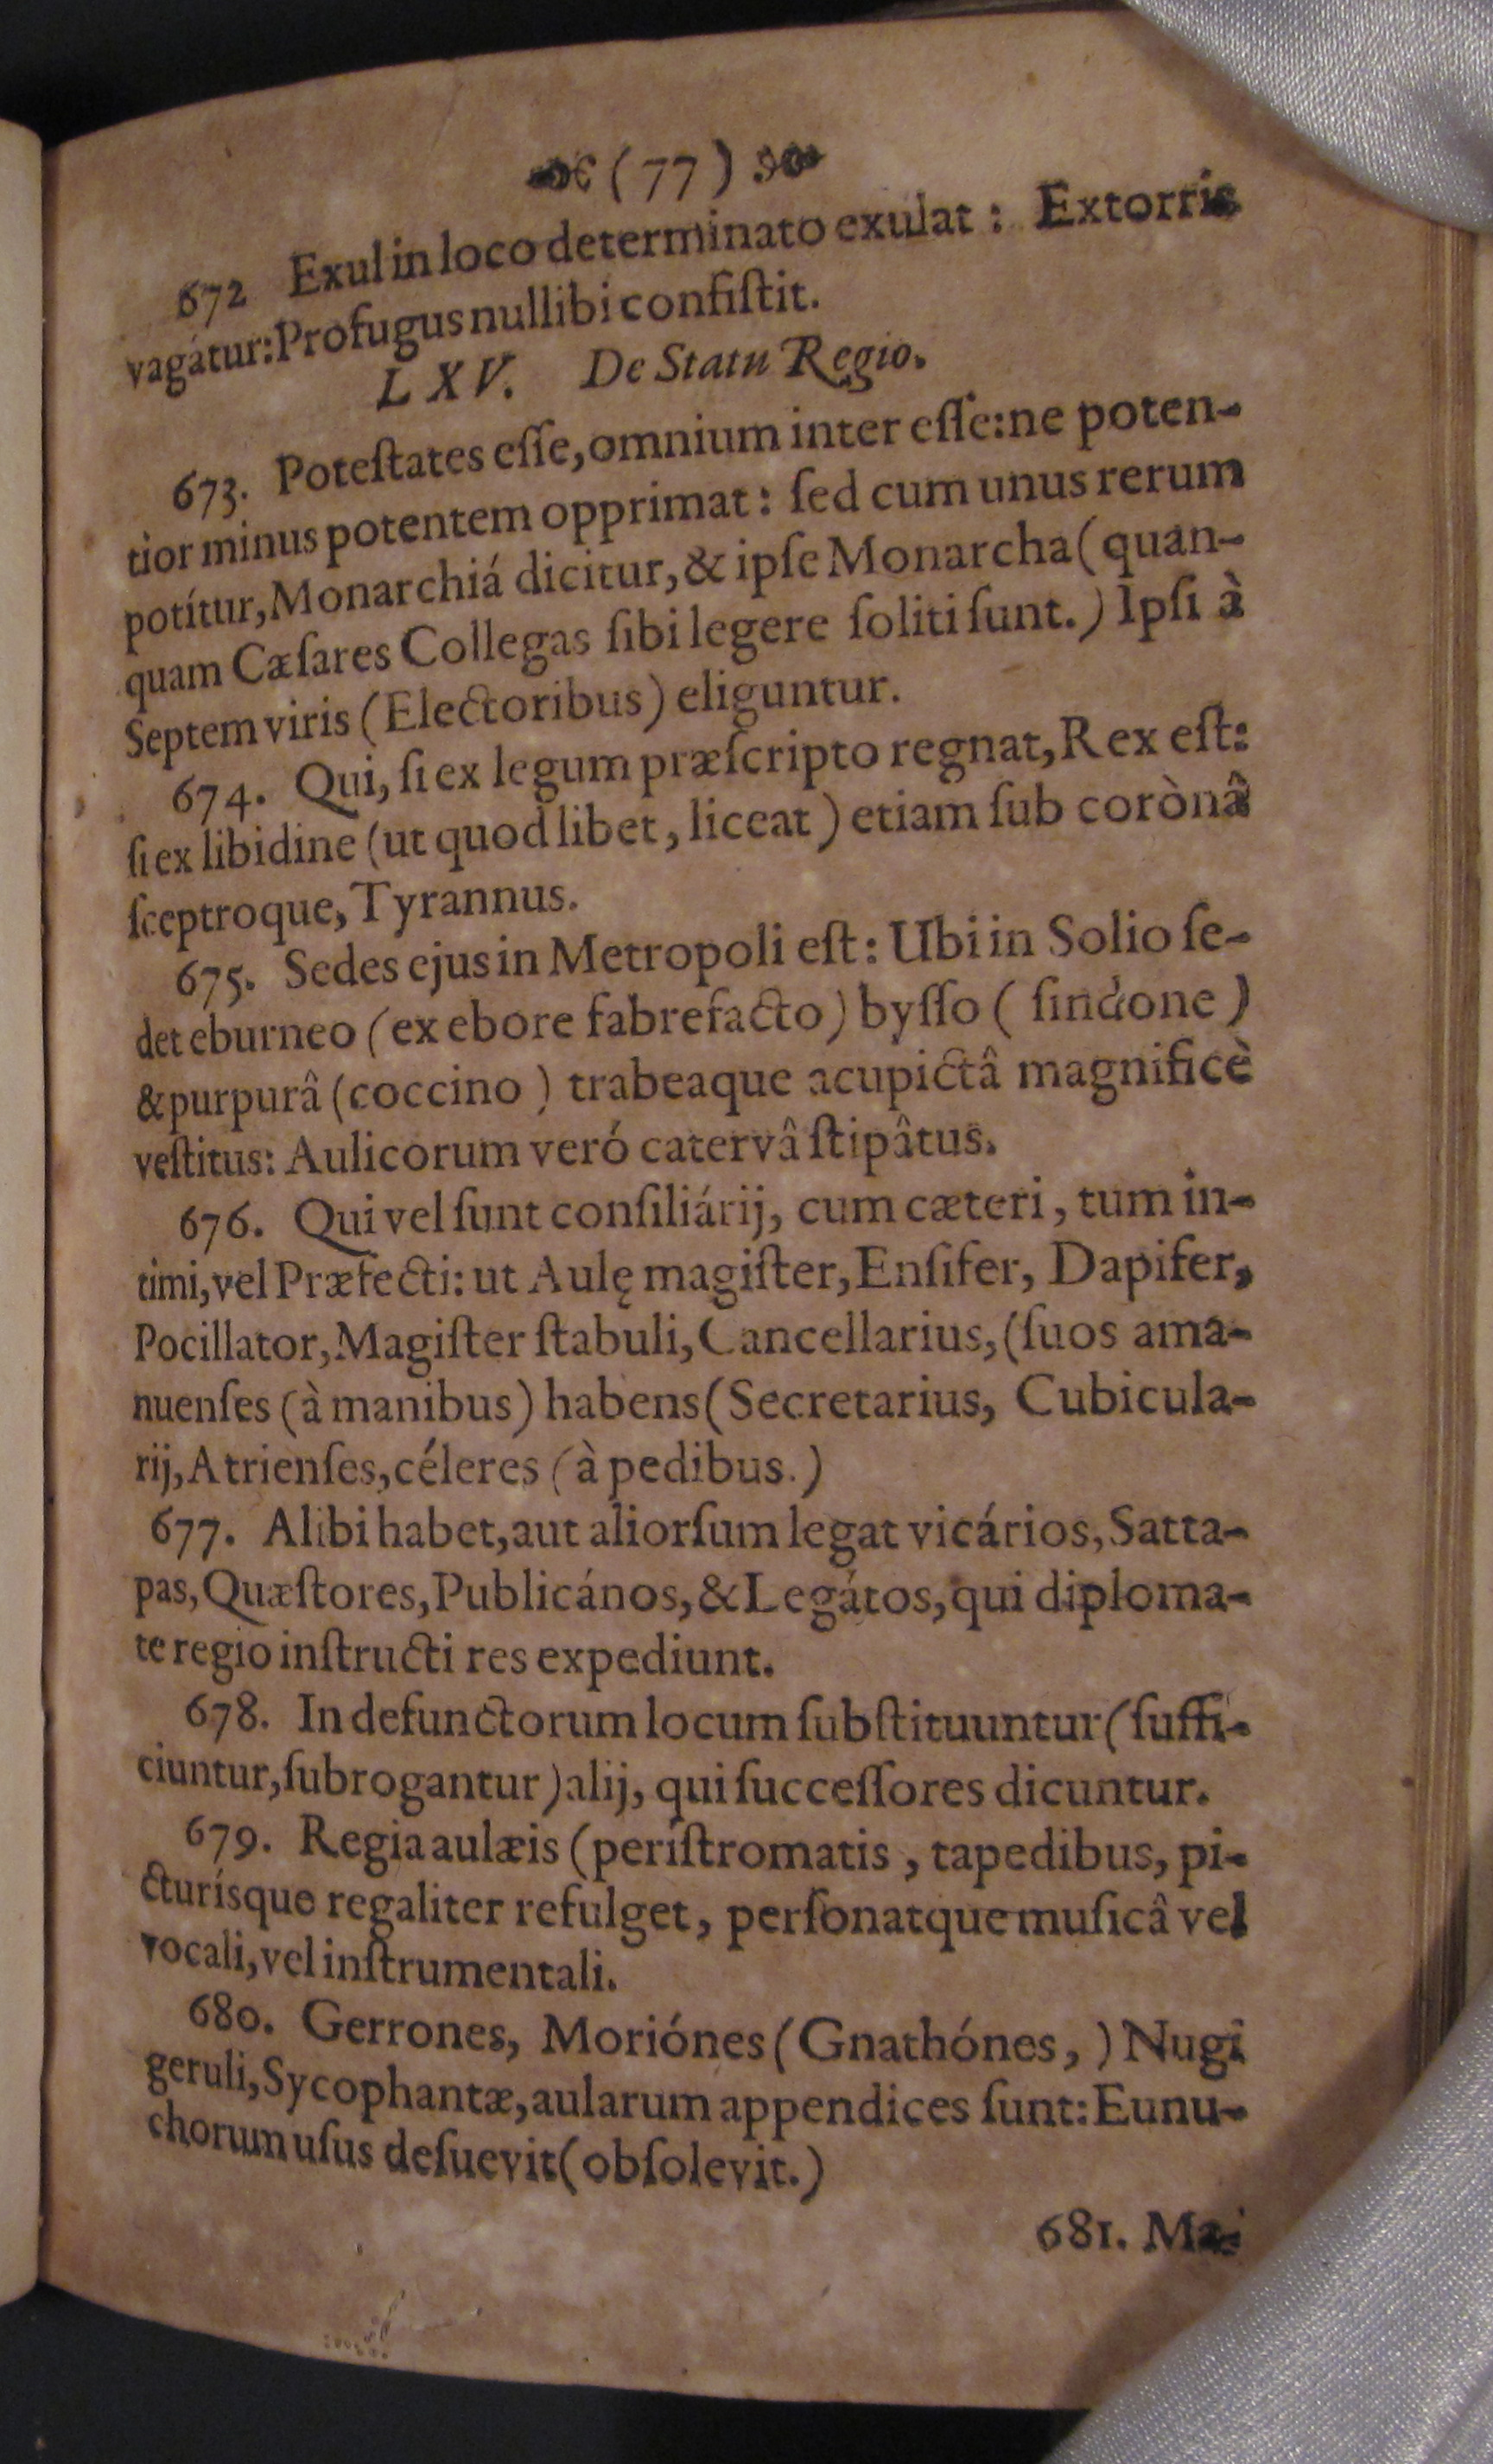 (77)
672 Exul in loco determinato exulat: Extorris
vagátur: Profugus nullibi conſiſtit.
LXV. De Statu Regio.
673. Poteſtates eſſe, omnium inter eſſe: ne poten-
tior minus potentem opprimat: ſed cum unus rerum
potítur, Monarchiá dicitur, & ipſe Monarcha (quan-
quam Cæſares Collegas ſibi legere ſoliti ſunt.) Ipſi à
Septem viris (Electoribus) eliguntur.
674. Qui, ſi ex legum præſcripto regnat, Rex eſt:
ſi ex libidine (ut quod libet, liceat) etiam ſub corònâ
ſceptroque, Tyrannus.
675. Sedes ejus in Metropoli eſt: Ubi in Solio ſe-
det eburneo (ex ebore fabrefacto) byſſo (ſindone)
& purpurâ (coccino) trabeaque acupictâ magnificè
veſtitus: Aulicorum veró catervâ ſtipâtus.
676. Qui vel ſunt conſiliárij, cum cæteri, tum in-
timi, vel Præfecti: ut Aulę magiſter, Enſifer, Dapifer,
Pocillator, Magiſter ſtabuli, Cancellarius, (ſuos ama-
nuenſes (à manibus) habens (Secretarius, Cubicula-
rij, Atrienſes, céleres (à pedibus.)
677. Alibi habet, aut aliorſum legat vicários, Satta-
pas, Quæſtores, Publicános, & Legátos, qui diploma-
te regio inſtructi res expediunt.
678. In defunctorum locum ſubſtituuntur (ſuffi-
ciuntur, ſubrogantur) alij, qui ſucceſſores dicuntur.
679. Regia aulæis (períſtromatis, tapedibus, pi-
cturísque regaliter refulget, perſonatque muſicâ vel
vocali, vel inſtrumentali.
680. Gerrones, Moriónes (Gnathónes,) Nugi
geruli, Sycophantæ, aularum appendices ſunt: Eunu-
chorum uſus deſuevit (obſolevit.)
681. Ma-